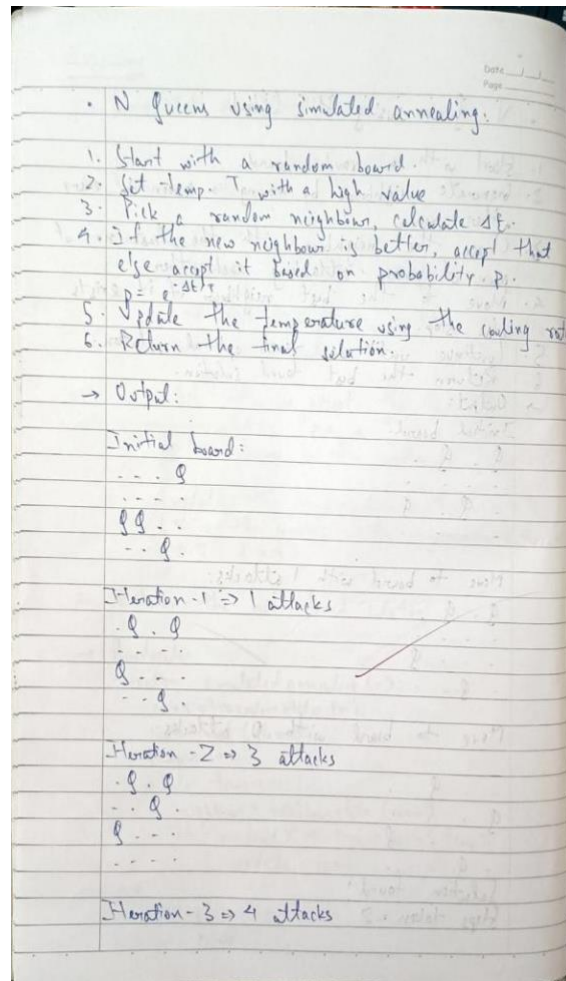 Date
Page
• N Queens using simulated annealing:
1. Start with a random board.
2. Set temp T with a high value
3. Pick a random neighbour, calculate ΔE.
4. If the new neighbour is better, accept that
else accept it based on probability p.
p = e^-ΔE/T
5. Update the temperature using the cooling rat
6. Return the final solution.
→ Output:
Initial board:
- - . Q
- - - -
Q Q - .
- . Q .
Iteration - 1 => 1 attacks
. Q . Q
- - - -
Q - - -
- - Q .
Iteration - 2 => 3 attacks
. Q . Q
- . Q .
Q - - -
- - - -
Iteration - 3 => 4 attacks